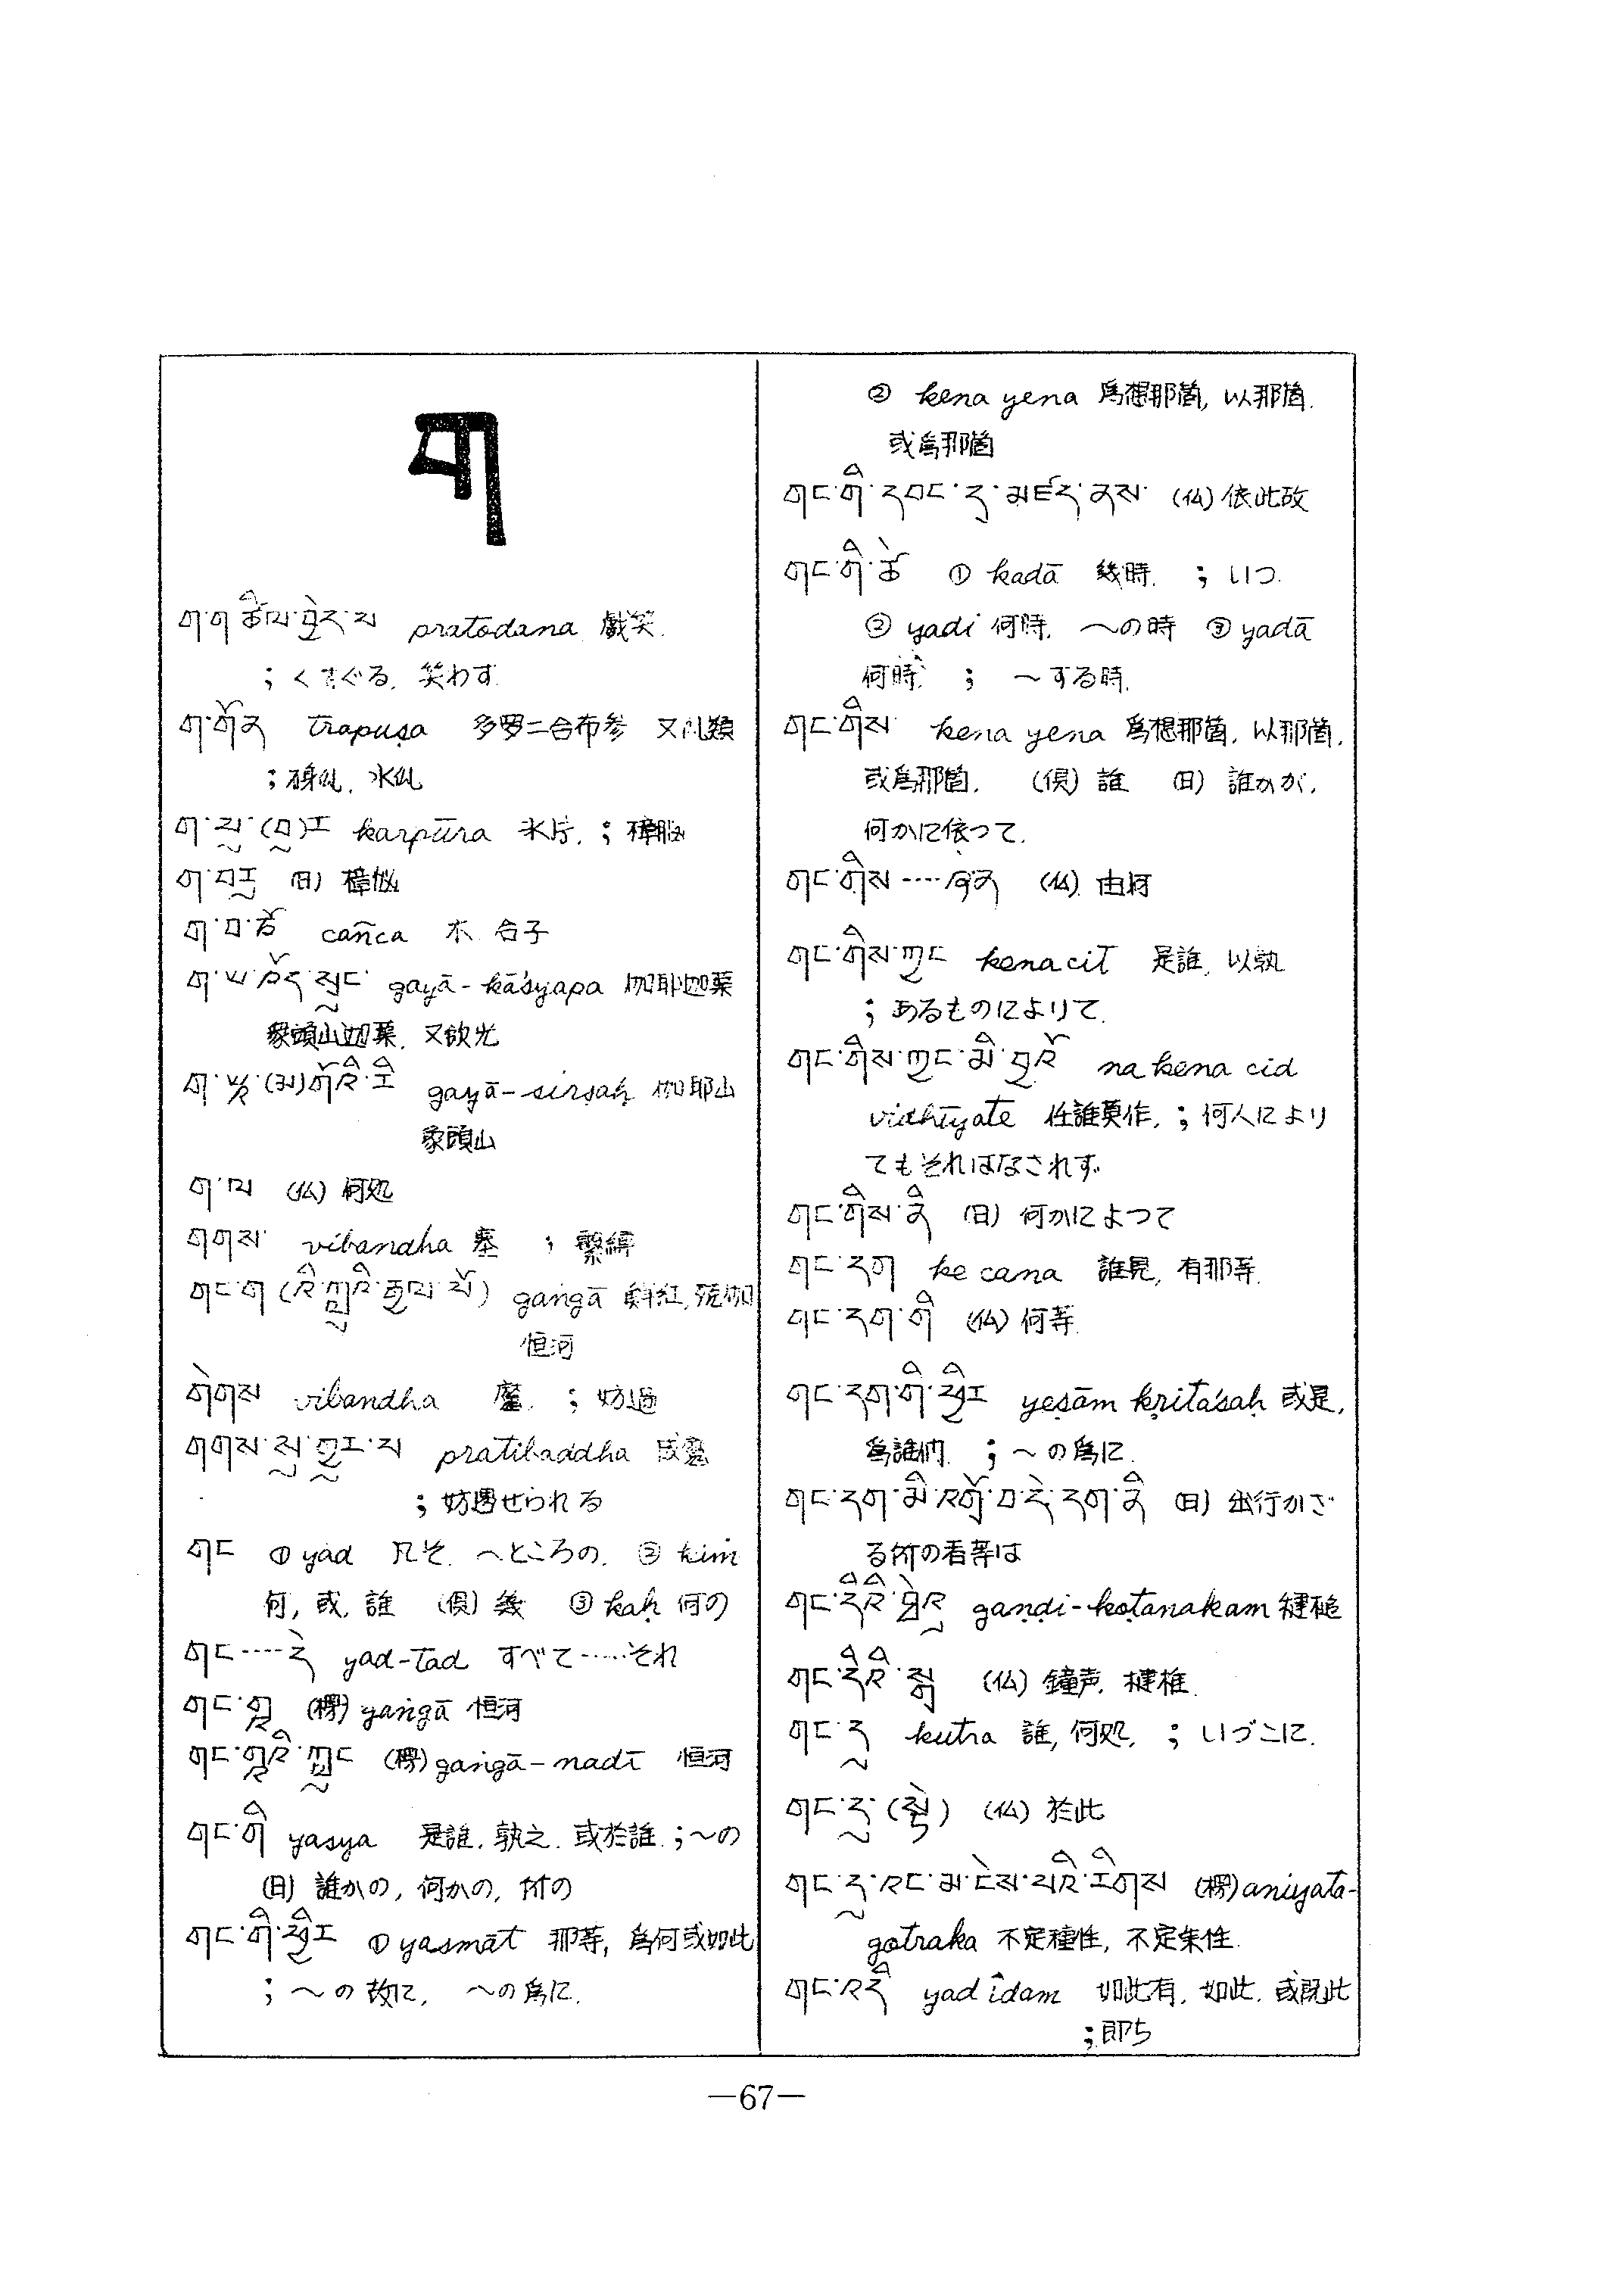 ག
ག་ག་ཚིལ་བྱེད་པ pratodana 戲笑.
; くすぐる. 笑わす.
ག་གོན trapuṣa 多罗二合布参 又瓜類
ག་པུ་(བུ)ར karpūra 氷片. ; 樟脳
ག་བུར (日)
ག་བ་ཙོ cañca 木 合子
ག་ཡ་འོད་སྲུང་ gayā-kāśyapa 伽耶迦葉
象頭山迦葉. 又飲光
gayā-sirṣaḥ 伽耶山
象頭山
ག་ལ (仏) 何処
གགས་ vibandha ; 繋縛
ག��་ག (རིའི་ཀླུང་) gaṅgā
恒河
གེགས vibandha 魔. ; 妨過
གགས་སུ་གྱུར་པ pratibaddha 成魔
; 妨過せられる
གང ① yad 凡そ. 〜ところの. ② kim
何, 或, 誰 (倶) 幾 ③ kaḥ 何の
གང་····དེ yad-tad すべて……それ
གང་གཱ (楞) yaṅgā 恒河
གང་གཱའི་ཀླུང (楞) gaṅgā-nadī 恒河
གང་གི yasya 是誰. 孰之. 或於誰. ; 〜の
(日) 誰かの, 何かの, 所の
གང་གི་ཕྱིར ① yasmāt 那等, 爲何或如此
; 〜の故に, 〜の爲に.
② kena yena 爲想那箇, 以那箇.
或爲那箇
གང་གི་དབང་དུ་མཛད་ནས་ (仏) 依此故
གང་གི་ཚེ ① kadā 幾時. ; いつ.
② yadi 何時. 〜の時 ③ yadā
何時. ; 〜する時.
གང་གིས་ kena yena 爲想那箇. 以那箇.
或爲那箇. (倶) 誰 (日) 誰かが.
何かに依つて.
གང་གིས་····ཤེ་ན (仏) 由何
གང་གིས་ཀྱང kenacit 是誰, 以孰
; あるものによりて.
གང་གིས་ཀྱང་མི་བྱའོ na kena cid
vidhīyate 任誰莫作. ; 何人により
てもそれはなされず.
གང་གིས་ནི (日) 何かによつて
གང་དག ke cana 誰見, 有那等.
གང་དག་གི (仏) 何等.
གང་དག་གི་ཕྱིར yeṣām kṛitaśaḥ 或是,
爲誰們. ; 〜の爲に.
གང་དག་མི་འགྲོ་བ་དེ་དག་ནི (日) 出行かざ
る所の者等は
gaṇḍi-koṭanakam 楗槌
གང་དིའི་སྒྲ (仏) 鐘声. 楗椎.
གང་དུ kutra 誰, 何処. ; いづこに.
གང་དུ་(སྟེ) (仏) 於此
གང་དུ་འང་མ་ངེས་པའི་རིགས (楞) aniyata-
gotraka 不定種性, 不定朱性.
གང་འདི yad idam 如此有. 如此. 或既此
; 即ち
—67—